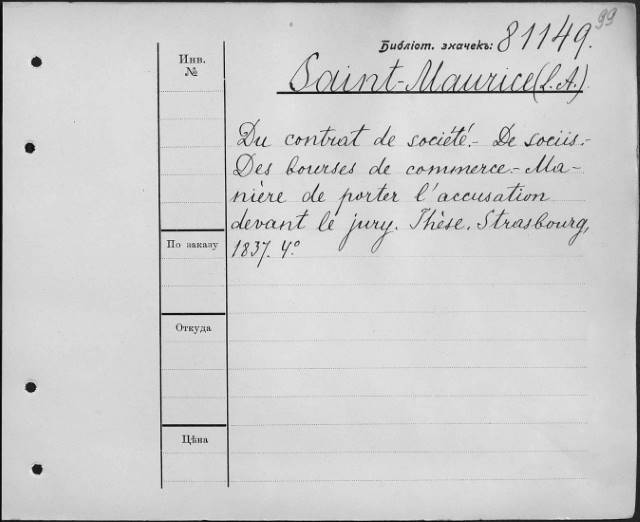 99
Библіот. значекъ: 81149.
Инв.
№
Saint-Maurice (L.A.)
Du contrat de société.- De sociis.-
Des bourses de commerce.- Ma-
nière de porter l'accusation
devant le jury. Thèse. Strasbourg,
По заказу
1837. 4°
Откуда
Цѣна